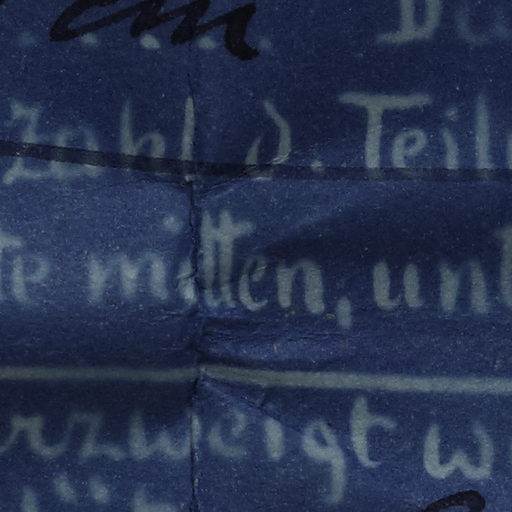 em
zahl d. Teil
te mitten, unt
rzweigt w